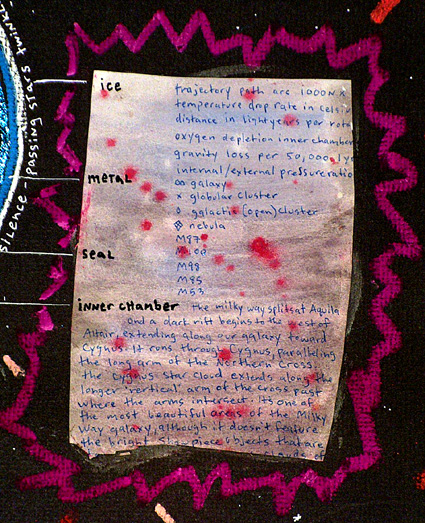 ice
trajectory path arc 1000N x
temperature drop rate in celsi
distance in lightyears per rota
oxygen depletion inner chamber
gravity loss per 50,000 lys
internal/external pressure ratio
metal
∞ galaxy
x globular cluster
◊ galactic (open) cluster
nebula
M87
seal
M100
M98
M95
M53
inner chamber
The milky way splits at Aquila
and a dark rift begins to the west of
Altair, extending along our galaxy toward
Cygnus. It runs through Cygnus, paralleling
the long arm of the Northern Cross.
the Cygnus star cloud extends along the
longer "vertical" arm of the cross past
where the arms intersect. Its one of
the most beautiful areas of the Milky
Way galaxy, although it doesn't feature
the bright objects that are
clouds of
silence - passing stars